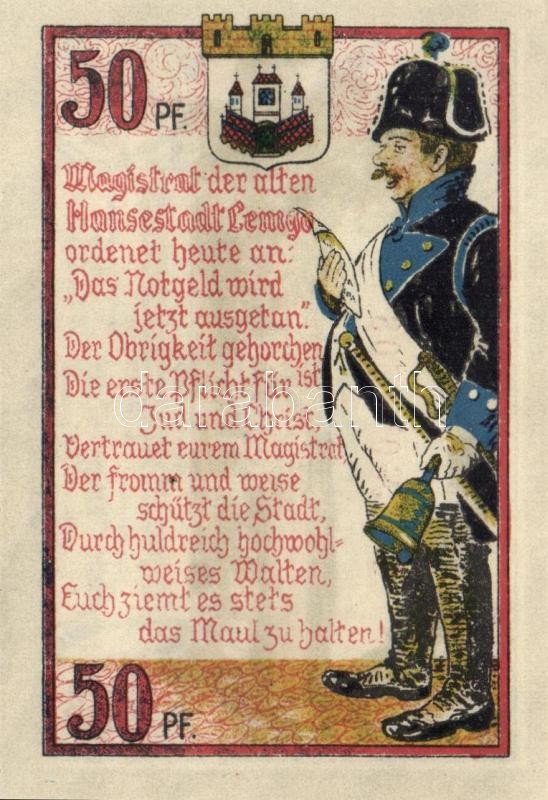 50 PF.
Magistrat der alten
Hansestadt Lemgo
ordenet heute an:
„Das Notgeld wird
jetzt ausgetan."
Der Obrigkeit gehorchen
Die erste Pflicht für ist
Jud und Christ,
Vertrauet eurem Magistrat
Der fromm und weise
schützt die Stadt,
Durch huldreich hochwohl=
weises Walten,
Euch ziemt es stets
das Maul zu halten!
50 PF.
darabanth